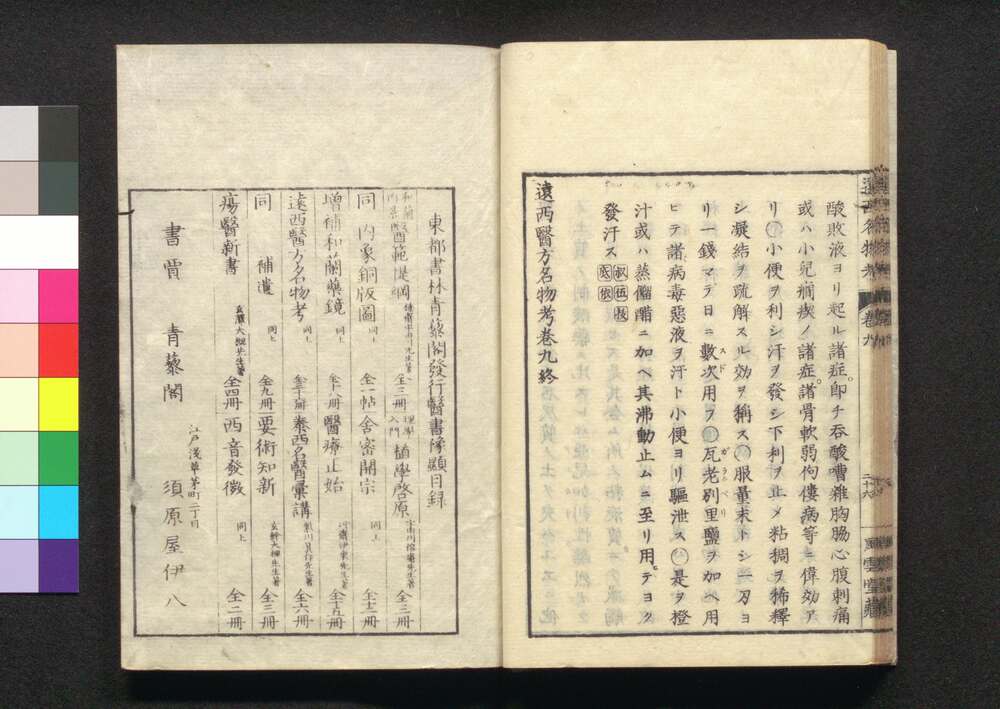 酸敗液ヨリ起ル諸症。即チ吞酸嘈雜胸膓心腹刺痛
或ハ小兒癇瘈ノ諸症諸骨軟弱佝僂病等ニ偉効ア
リ○小便ヲ利シ汗ヲ發シ下利ヲ止メ粘稠ヲ稀釋
シ凝結ヲ疏解スル効ヲ稱ス○服量末トシ一刀ヨ
リ一錢マデ日ニ數次用フ○瓦老別里鹽ヲ加ヘ用
ヒテ諸病毒惡液ヲ汗ト小便ヨリ驅泄ス○是ヲ橙
汁或ハ蒸餾醋ニ加ヘ其沸動止ムニ至リ用。テヨク
發汗ス
遠西醫方名物考卷九終
卷九
二十六
風雲堂藏
東都書林青藜閣發行醫書豫顯目錄
和蘭內景醫範提綱 榛齋宇田川先生著 全三冊
理學入門植學啓原 宇田川榕菴先生著 全三冊
同 內象銅版圖 同上 全一帖
舍密開宗 同上
增補和蘭藥鏡 同上
醫療正始
遠西醫方名物考 同上
泰西名醫彙講 全六冊
同 補遺 同上 全九冊
要術知新 玄幹大槻先生著 全三冊
瘍醫新書 玄澤大槻先生著 全四冊
西音發微 同上 全二冊
書賈 青藜閣
江戶淺草茅町二丁目
須原屋伊八